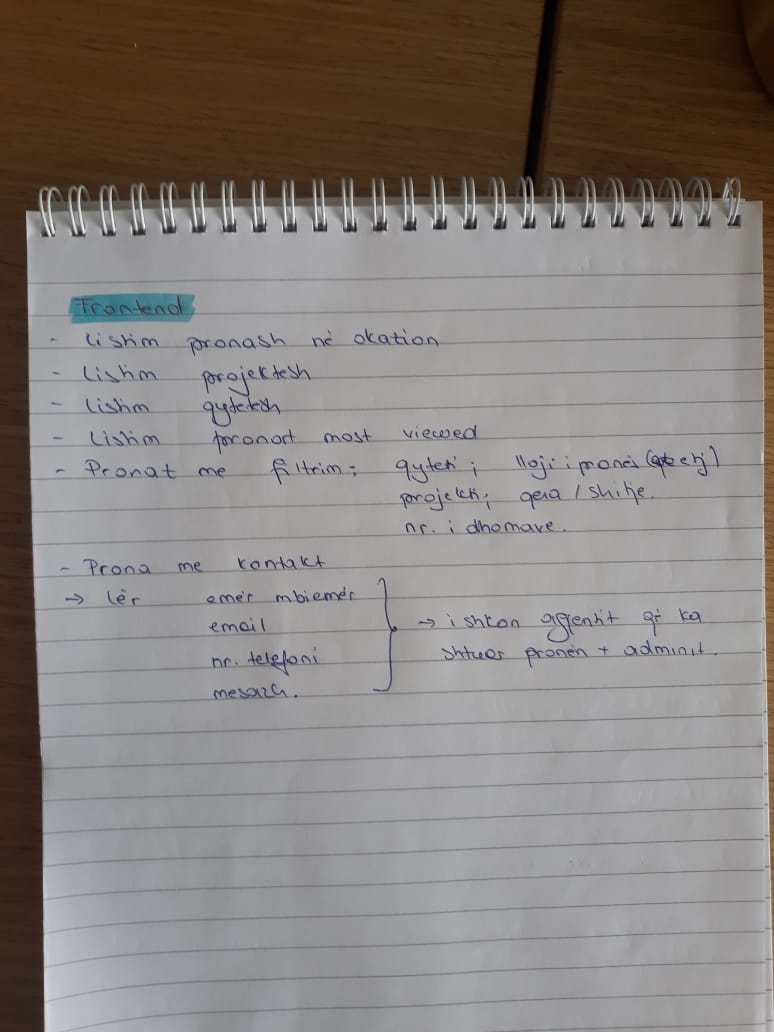 Frontend
- Listim pronash në okation
- Listim projektesh
- Listim qytetesh
- Listim pronat most viewed
- Pronat me filtrim: qyteti; lloji i pronës (etj)
projekti; qera / shitje.
nr. i dhomave.
- Prona me kontakt
→ lër emër mbiemër
email
nr. telefoni
mesazh.
→ i shkon agjentit që ka
shtuar pronën + adminit.